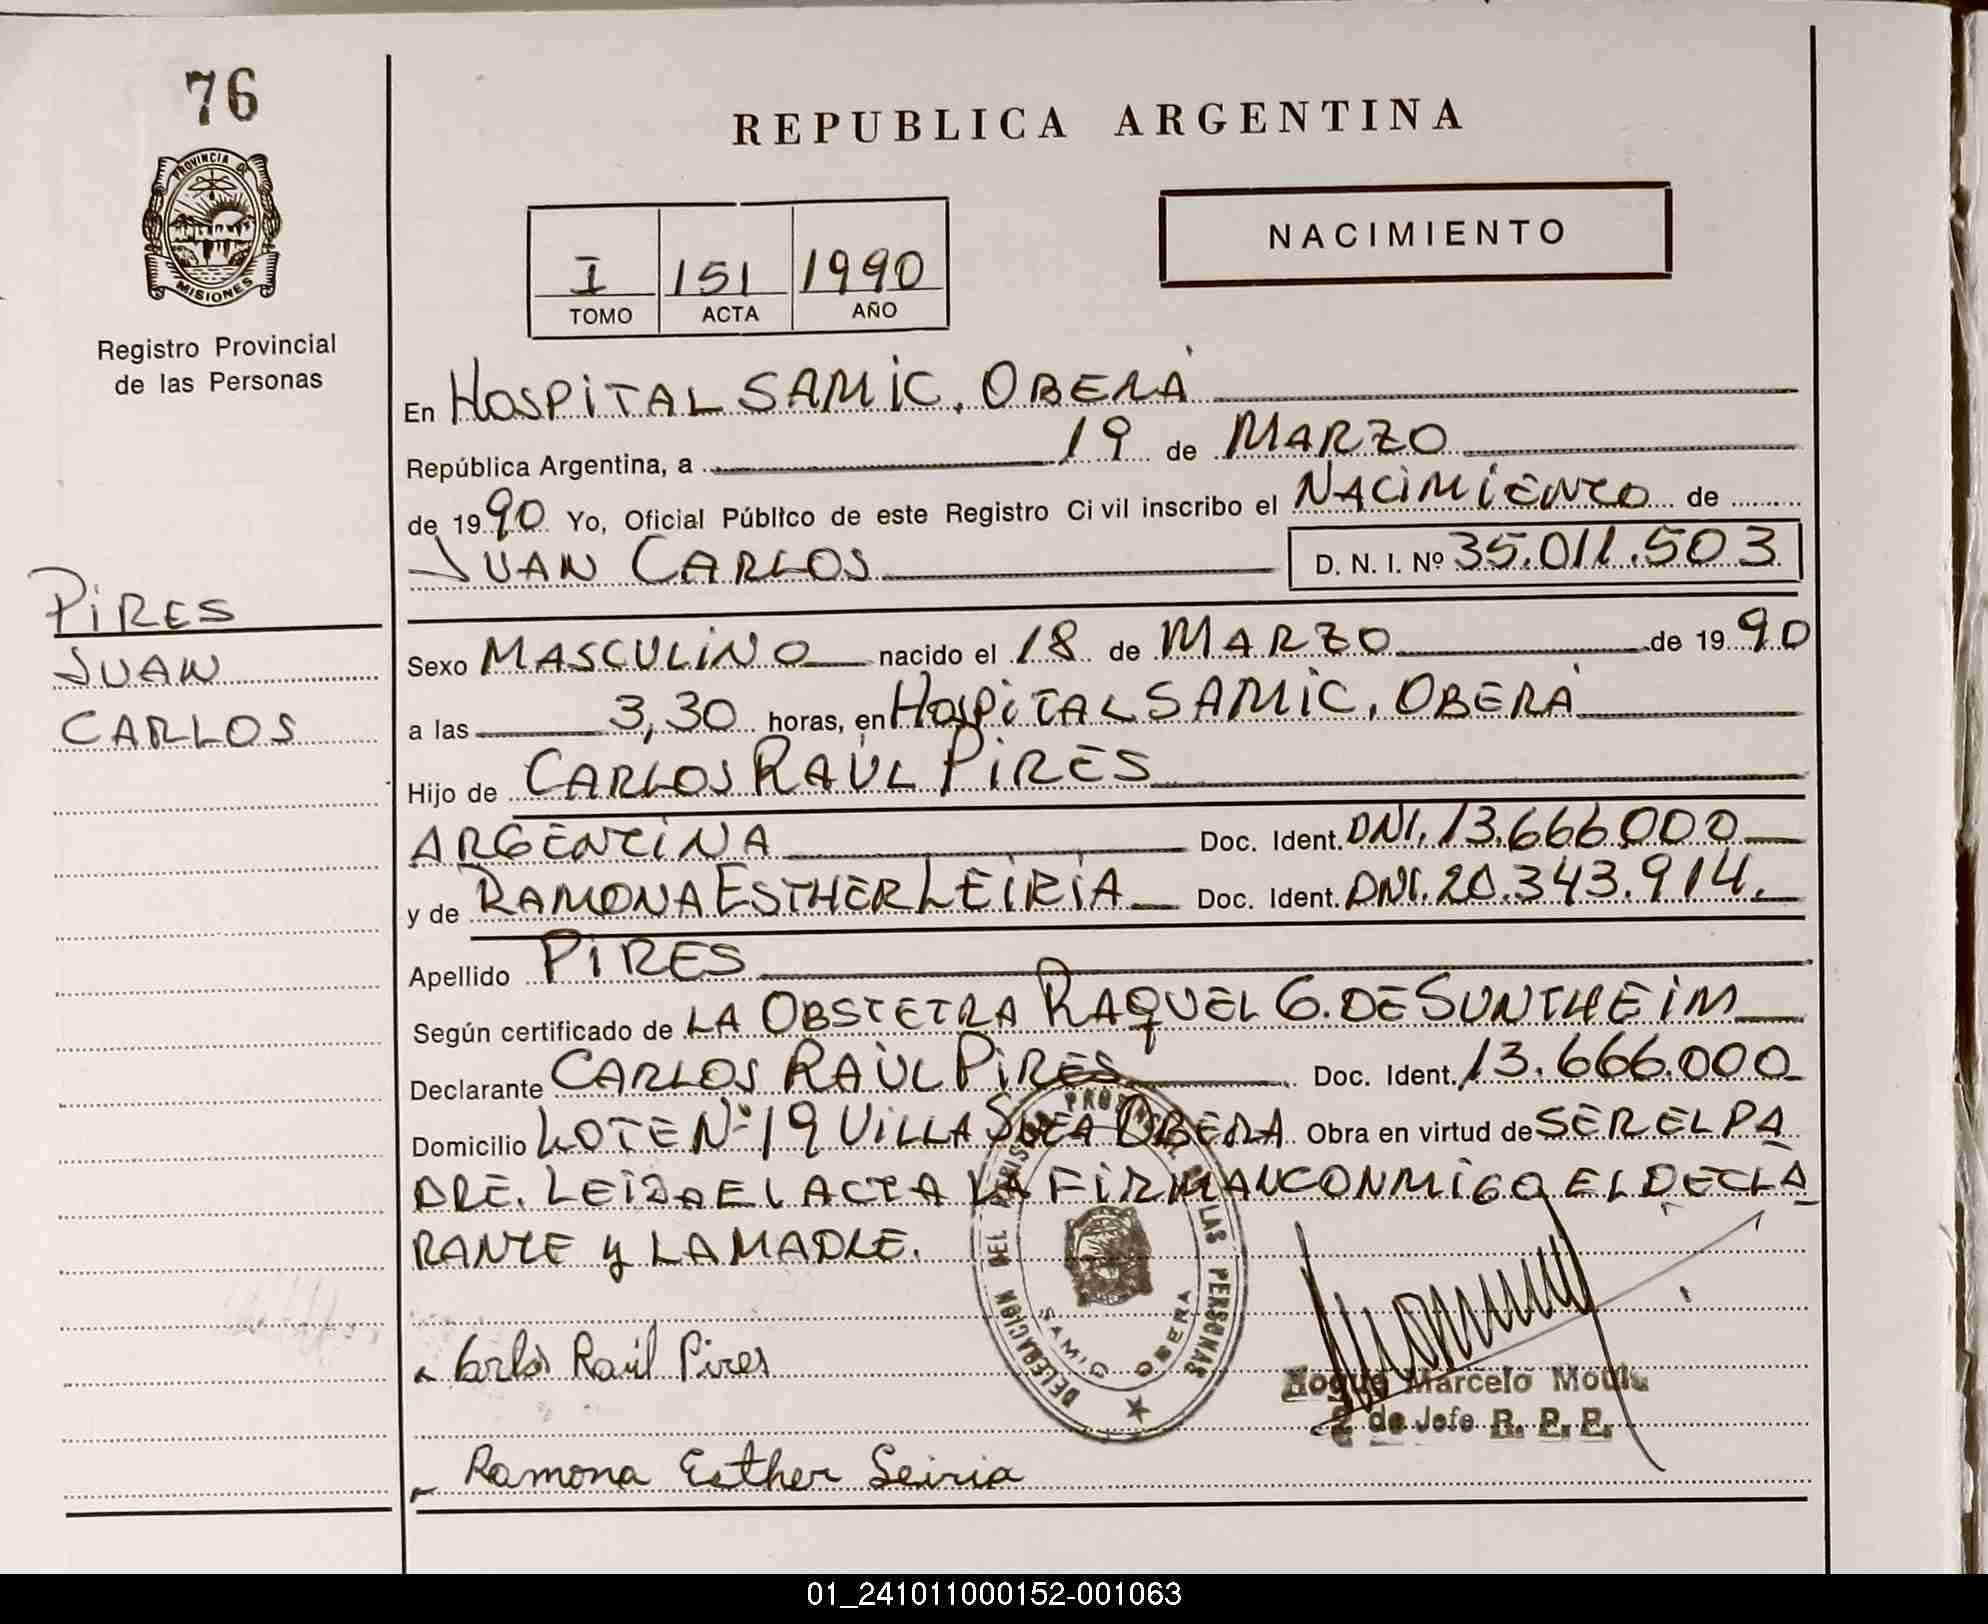 76
PROVINCIA DE
MISIONES
Registro Provincial
de las Personas
REPUBLICA ARGENTINA
I 151 1990
TOMO ACTA AÑO
NACIMIENTO
En HOSPITAL SAMIC. OBERÁ
República Argentina, a 19 de MARZO
de 1990 Yo, Oficial Público de este Registro Civil inscribo el NACIMIENTO de
JUAN CARLOS D. N. I. Nº 35.011.503
PIRES
JUAN
CARLOS
Sexo MASCULINO nacido el 18 de MARZO de 1990
a las 3,30 horas, en HOSPITAL SAMIC, OBERÁ
Hijo de CARLOS RAÚL PIRES
ARGENTINA Doc. Ident. DNI. 13.666.000
y de RAMONA ESTHER LEIRIA Doc. Ident. DNI. 20.343.914.
Apellido PIRES
Según certificado de LA OBSTETRA RAQUEL G. DE SUNTHEIM
Declarante CARLOS RAÚL PIRES Doc. Ident. 13.666.000
Domicilio LOTE Nº 19 VILLA SVEA OBERA Obra en virtud de SER EL PA
DRE. LEIDA EL ACTA LA FIRMAN CONMIGO EL DECLA
RANTE y LA MADRE.
DELEGACION DEL REGISTRO PROVINCIAL DE LAS PERSONAS
SAMIC OBERA
Carlos Raúl Pires
Roque Marcelo
2 de Jefe R. P. P.
Ramona Esther Leiria
01_241011000152-001063